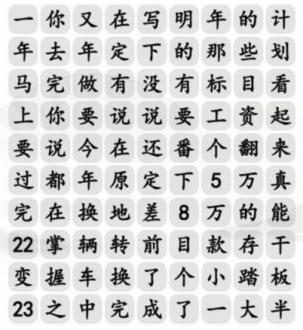 一你又在写明年的计
年去年定下的那些划
马完做有没有标目看
上你要说说要工资起
要说今在还番个翻来
过都年原定下5万真
完在换地差8万的能
22掌辆转前目款存干
变握车换了个小踏板
23之中完成了一大半